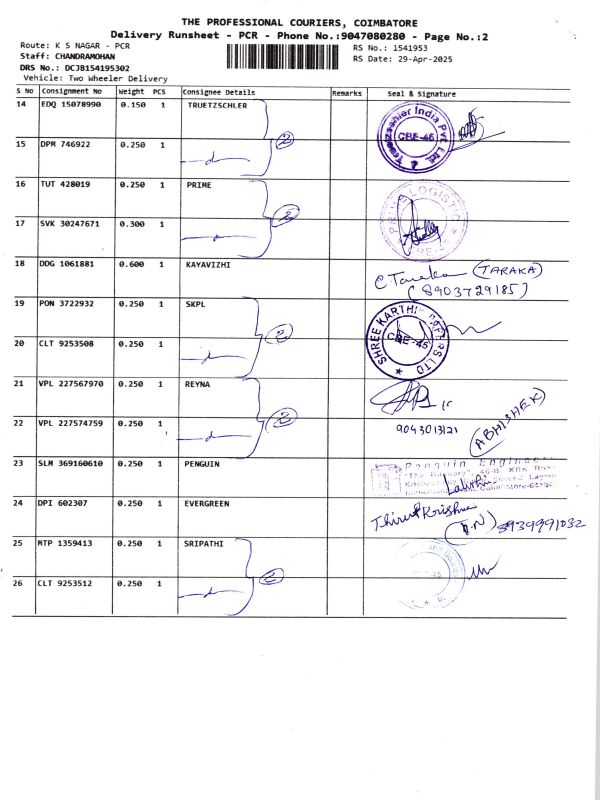 THE PROFESSIONAL COURIERS, COIMBATORE
Delivery Runsheet - PCR - Phone No.:9047080280 - Page No.:2
Route: K S NAGAR - PCR
RS No.: 1541953
Staff: CHANDRAMOHAN
RS Date: 29-Apr-2025
DRS No.: DCJB154195302
Vehicle: Two Wheeler Delivery
S No Consignment No Weight PCS Consignee Details Remarks Seal & Signature
14 EDQ 15078990 0.150 1 TRUETZSCHLER
Truetzschler India Pvt. Ltd. CBE-45
15 DPM 746922 0.250 1 —d— 2
16 TUT 428019 0.250 1 PRIME
PRIME LOGISTIC
17 SVK 30247671 0.300 1 —d— 2
18 DDG 1061881 0.600 1 KAYAVIZHI
C Taraka (TARAKA)
(8903729185)
19 PON 3722932 0.250 1 SKPL
SHREE KARTHIK PAPERS LTD CBE-45
20 CLT 9253508 0.250 1 —d— 2
21 VPL 227567970 0.250 1 REYNA
22 VPL 227574759 0.250 1 —d— 2
9043013121 (ABHISHEK)
23 SLM 369160610 0.250 1 PENGUIN
Penguin Engineer
46-B, KRK
Layout
Lalithi
24 DPI 602307 0.250 1 EVERGREEN
Thiru Krishna
8939991032
25 MTP 1359413 0.250 1 SRIPATHI
and Boards
26 CLT 9253512 0.250 1 —d— 2